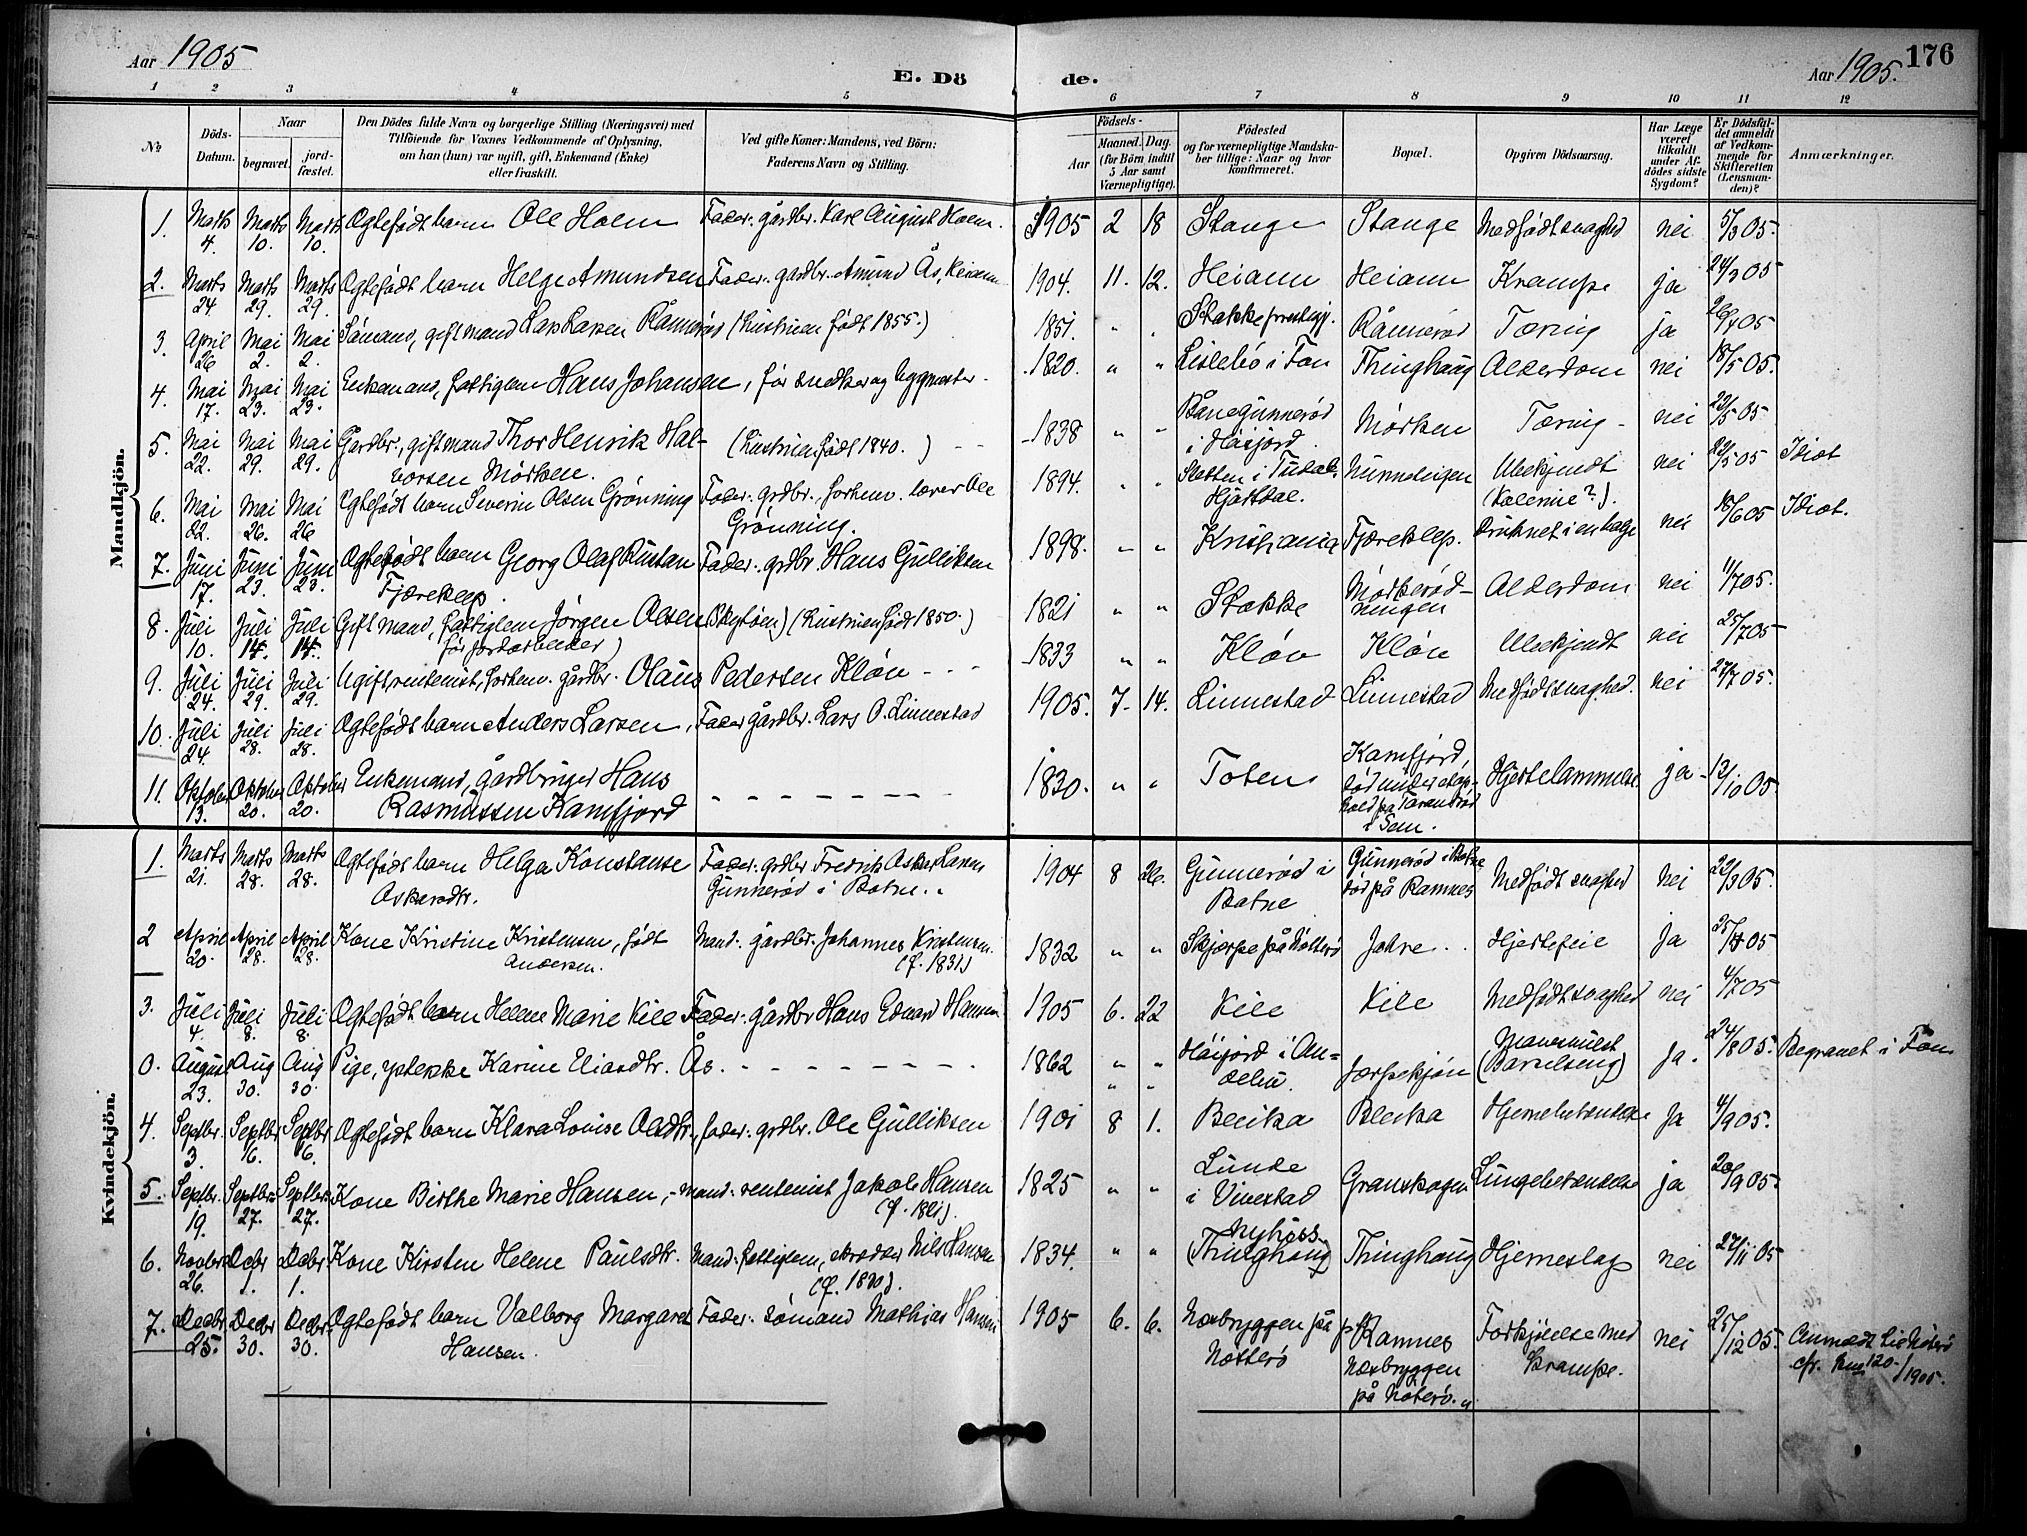 Aar 1905
E. Dö
de.
Aar 1905.
176
1 2 3 4 5 6 7 8 9 10 11 12
No
Döds-Datum.
Naar
begravet.
jord-fæstet.
Den Dödes fulde Navn og borgerlige Stilling (Næringsvei) med
Tilföiende for Voxnes Vedkommende af Oplysning,
om han (hun) var ugift, gift, Enkemand (Enke)
eller fraskilt.
Ved gifte Koner: Mandens, ved Börn:
Faderens Navn og Stilling.
Födsels-
Aar
Maaned. Dag.
(for Börn indtil
5 Aar samt
Værnepligtige).
Födested
og for værnepligtige Mandska-
ber tillige: Naar og hvor
konfirmeret.
Bopæl.
Opgiven Dödsaarsag.
Har Læge
været
tilkaldt
under Af-
dödes sidste
Sygdom?
Er Dödsfal-
det anmeldt
af Vedkom-
mende for
Skifteretten
(Lensman-
den)?
Anmærkninger.
Mandkjön.
1. Marts 4. Marts 10. Marts 10. Ægtefødt barn Ole Holm Fader: gårdbr. Karl August Holm. 1905 2 18 Stange Stange Medfødt svaghed nei 5/3 05.
2. Marts 24 Marts 29. Marts 29. Ægtefødt barn Helge Amundsen Fader: gardbr. Amund Ås, Heiann 1904. 11. 12. Heiann Heiann Krampe ja 24/3 05
3. April 26 Mai 2. Mai 2. Sømand, gift mand Lars Larsen Rånnerød (hustruen født 1855.) 1851 " " Stokke prestegj. Rånnerød Tæring ja
4. Mai 17. Mai 23. Mai 23. Enkemand, fattiglem Hans Johansen, før snedker og bygmester. 1820. " " Lislebø i Fon Thinghaug Alderdom nei 18/5 05.
5. Mai 22. Mai 29. Mai 29. Gårdbr., gift mand Thor Henrik Hal-
vorsen Mörken. (hustruen født 1840.) 1838 " " i Høijord Mörken Tæring nei 23/5 05
6. Mai 22. Mai 26. Mai 26 Ægtefødt barn Severin Olsen Grønning Fader: grdbr., forhenv. lærer Ole
Grønning. 1894. " " Sletten i Tudal Hjartdal. Ubekjendt nei 22/5 05 Idiot
7. Juni 17. Juni 23. Juni 23. Ægtefødt barn Georg Olaf Rustan
Fjæreklep. Fader: grdbr. Hans Gulliksen 1898. " " Kristiania Fjæreklep. Druknet i en nei 18/6 05 Idiot.
8. Juli 10. Juli 14. Juli 14. Gift mand, fattiglem Jörgen Olsen
før jordarbeider) (hustruen født 1850.) 1821 " " Stokke Alderdom nei 11/7 05.
9. Juli 24. Juli 29. Juli 29. Ugift, rentenist, forhenv. gårdbr. Olaus Pedersen Kløv 1833 " " Kløv Kløv Ubekjendt nei 25/7 05
10. Juli 24. Juli 28. Juli 28. Ægtefødt barn Anders Larsen, Fader gårdbr. Lars O. Linnestad 1905. 7. 14. Linnestad Linnestad Medfødt svaghed. nei 27/7 05.
11. Oktober 13. Oktober 20. Oktober 20. Enkemand, gårdbruger Hans
Rasmussen Kamfjord 1830. " " Toten Kamfjord,
død under op-
hold på
i Sem. Hjertelammelse ja 13/10 05
Kvindekjön.
1. Marts 21. Marts 28. Marts 28. Ægtefødt barn Helga Konstanse
Fader: grdbr Fredrik
Gunnerød i Botne. 1904 8 26. Gunnerød i
Botne Gunnerød i Botne
død på Ramnes Medfødt svaghed Nei 22/3 05.
2 April 20. April 28. April 28. Kone Kristine Kristensen, født
Andersen. Mand: gårdbr. Johannes Kristensen
(f. 1831) 1832 " " på Nøtterø Jahre Hjertefeil Ja
3. Juli 4. Juli 8. Juli 8. Ægtefødt barn Helene Marie Kile Fader: gårdbr Hans Edvard Hansen 1905 6. 22 Kile Kile Medfødt svaghed nei 4/7 05
0. August 23. Aug 30. Aug 30. Pige, Karine Eliasdtr. Ås. 1862 " " Høijord i An-
debu. (Barselseng) ja. 24/8 05. Begravet i Fon
4. Septbr. 3. Septbr 6. Septbr 6. Ægtefødt barn Klara Louise Olsdtr., fader: grdbr. Ole Gulliksen 1901 8 1. Blecka Blecka Hjernebetændelse Ja 4/9 05.
5. Septbr. 19. Septbr 27. Septbr 27. Kone Birthe Marie Hansen, mand: rentenist Jakob Hansen
(f. 1821). 1825 " " Lunde
i Vivestad Granskogen Lungebetændelse ja 20/9 05.
6. Novbr 26. Decbr 1. Decbr 1. Kone Kirsten Helene Paulsdtr. Mand: fattiglem, skrædder Nils Hansen
(f. 1830). 1834. " " (Thinghaug) Thinghaug Hjerneslag nei 27/11 05
7. Decbr. 25. Decbr 30. Decbr. 30. Ægtefødt barn Valborg Margaret
Hansen. Fader: sømand Mathias Hansen 1905 6. 6. Næsbryggen på
Nøtterø Ramnes
Næsbryggen
på Nøterø. Forkjølelse med
krampe. nei 25/12 05. Anmeldt til Nøterø
cfr. 120/1905.